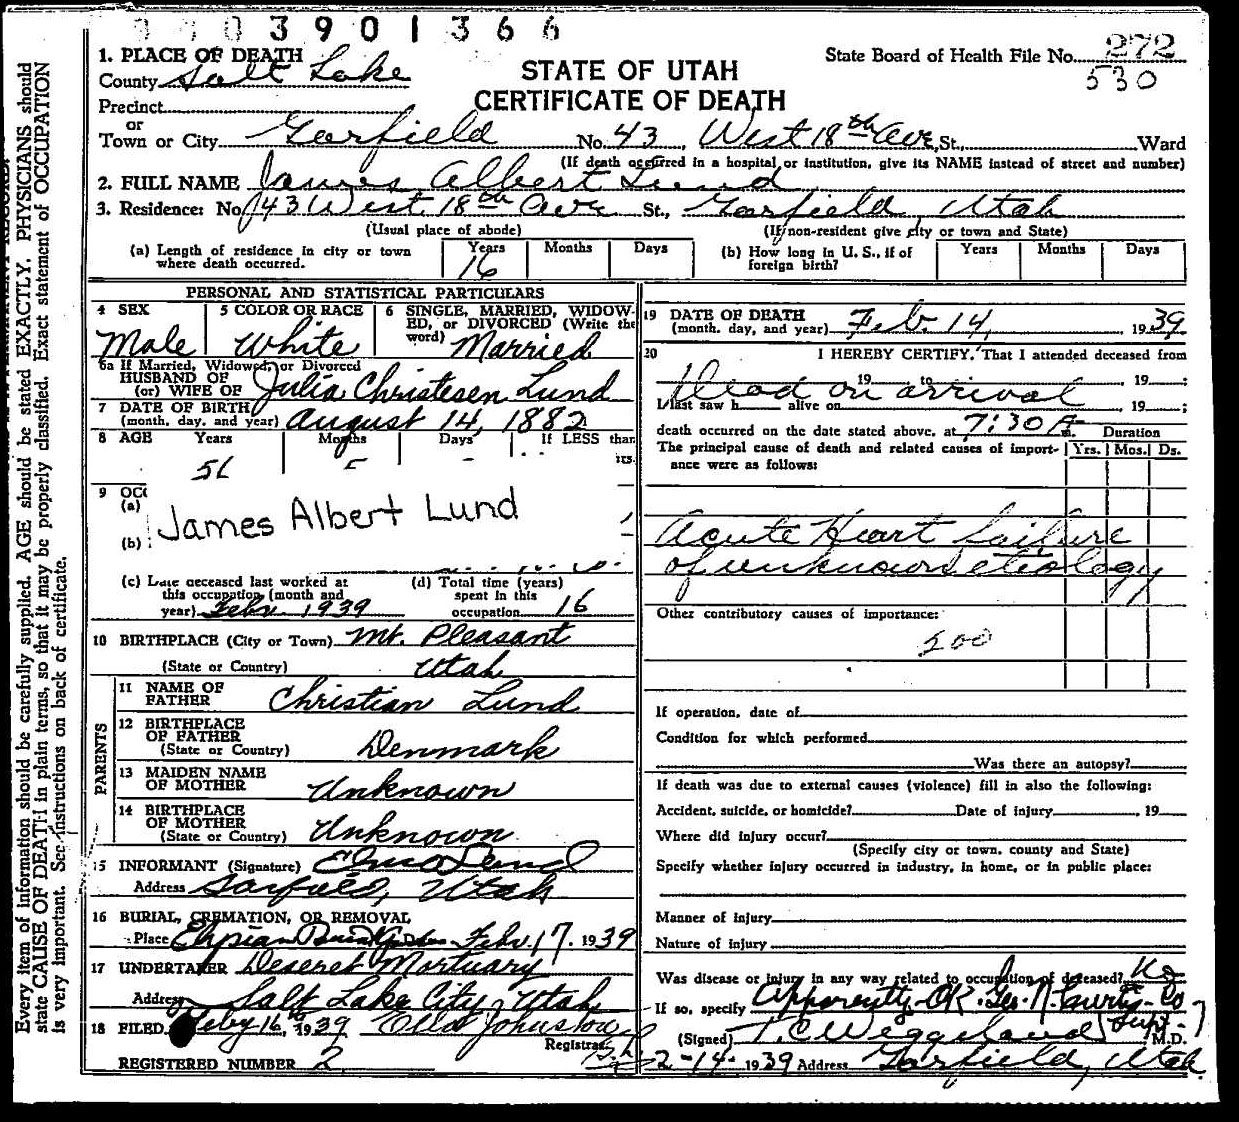 3901366
1. PLACE OF DEATH
County Salt Lake
STATE OF UTAH
CERTIFICATE OF DEATH
State Board of Health File No. 272
530
Precinct
or
Town or City Garfield No. 43, West 18th Ave St., Ward
(If death occurred in a hospital or institution, give its NAME instead of street and number)
2. FULL NAME James Albert Lund
3. Residence: No. 43 West 18th Ave St., Garfield, Utah
(Usual place of abode) (If non-resident give city or town and State)
(a) Length of residence in city or town where death occurred. Years 16 Months Days
(b) How long in U. S., if of foreign birth? Years Months Days
PERSONAL AND STATISTICAL PARTICULARS
4 SEX Male
5 COLOR OR RACE White
6 SINGLE, MARRIED, WIDOWED, or DIVORCED (Write the word) Married
6a If Married, Widowed, or Divorced
HUSBAND OF
(or) WIFE OF Julia Christesen Lund
7 DATE OF BIRTH
(month, day, and year) August 14, 1882
8 AGE Years Months Days If LESS than
56 5 -
9 OCC
(a)
(b)
James Albert Lund
(c) Date deceased last worked at
this occupation (month and
year) Feby 1939
(d) Total time (years)
spent in this
occupation 16
10 BIRTHPLACE (City or Town) Mt. Pleasant
(State or Country) Utah
PARENTS
11 NAME OF
FATHER Christian Lund
12 BIRTHPLACE
OF FATHER
(State or Country) Denmark
13 MAIDEN NAME
OF MOTHER Unknown
14 BIRTHPLACE
OF MOTHER
(State or Country) Unknown
15 INFORMANT (Signature) Elmo Lund
Address Garfield, Utah
16 BURIAL, CREMATION, OR REMOVAL
Place Elysian Date Febr. 17. 1939
17 UNDERTAKER Deseret Mortuary
Address Salt Lake City, Utah
18 FILED. Feby 16th 1939 Ella Johnston
Registrar
REGISTERED NUMBER 2
19 DATE OF DEATH
(month, day, and year) Feb. 14, 1939
20 I HEREBY CERTIFY, That I attended deceased from
19 to 19 ;
Dead on arrival
I last saw h alive on , 19 ;
death occurred on the date stated above, at 7:30 A m. Duration
The principal cause of death and related causes of importance were as follows: Yrs. Mos. Ds.
Acute Heart failure
of unknown etiology
Other contributory causes of importance:
200
If operation, date of
Condition for which performed
Was there an autopsy?
If death was due to external causes (violence) fill in also the following:
Accident, suicide, or homicide? Date of injury , 19
Where did injury occur?
(Specify city or town, county and State)
Specify whether injury occurred in industry, in home, or in public place:
Manner of injury
Nature of injury
Was disease or injury in any way related to occupation of deceased? No
If so, specify Apparently OK. Geo. N. Curtis Co
Supt.
(Signed) T. C. Weggeland M.D.
2-14- 1939 Address Garfield, Utah
Every item of information should be carefully supplied. AGE should be stated EXACTLY. PHYSICIANS should
state CAUSE OF DEATH in plain terms, so that it may be properly classified. Exact statement of OCCUPATION
is very important. See instructions on back of certificate.